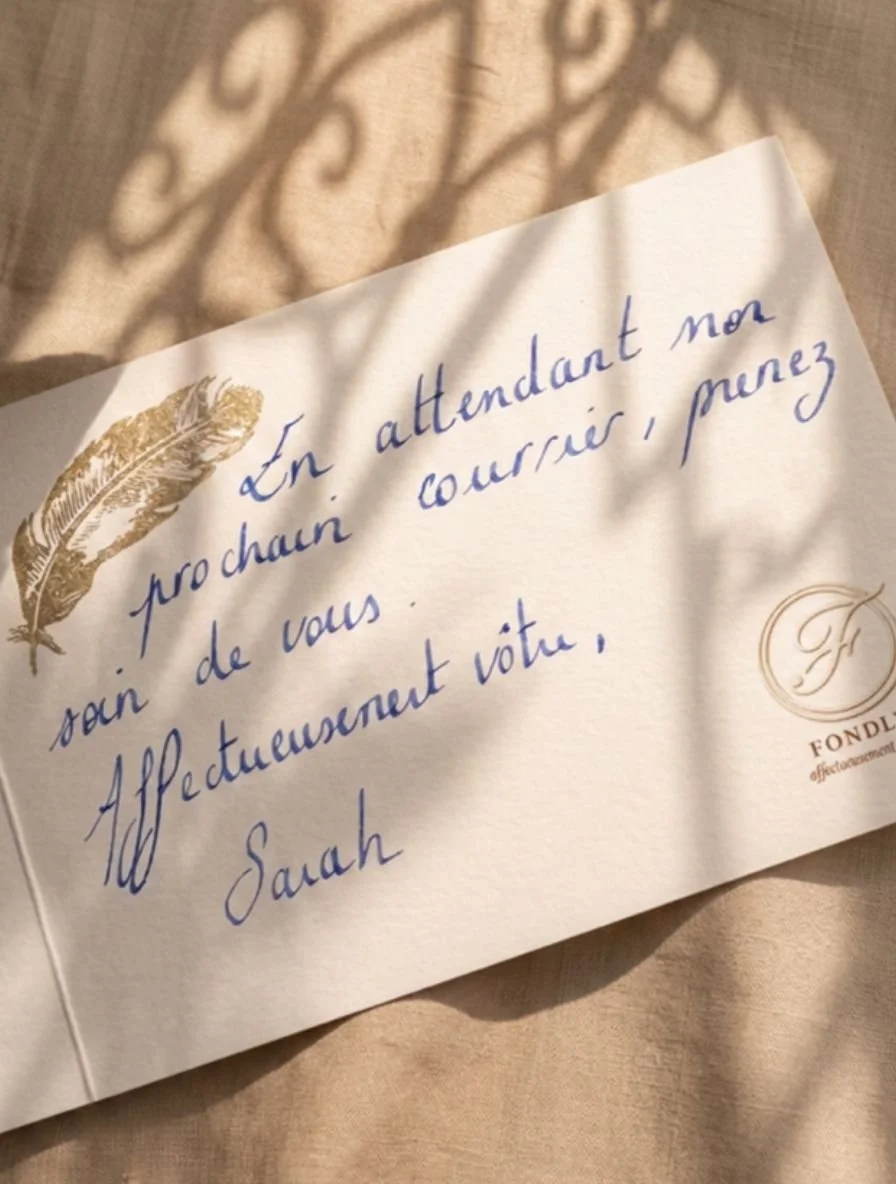 En attendant mon
prochain courrier, prenez
soin de vous.
Affectueusement vôtre,
Sarah
F
FONDLY
affectueusement